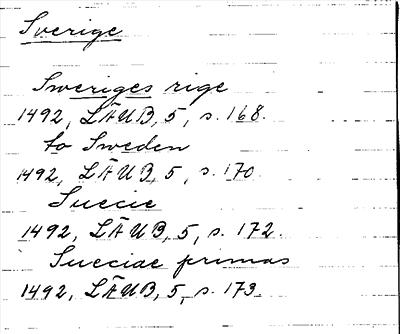 Sverige
Sweriges rige
1492, LÄUB, 5, s. 168.
to Sweden
1492, LÄUB, 5, s. 170.
Suecie
1492, LÄUB, 5, s. 172.
Sueciae primas
1492, LÄUB, 5, s. 173.